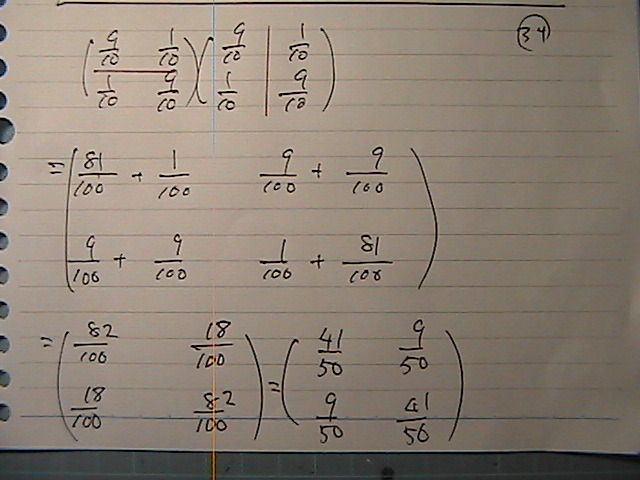 34
( 9/10 1/10 ) ( 9/10 | 1/10 )
( 1/10 9/10 ) ( 1/10 | 9/10 )
= ( 81/100 + 1/100 9/100 + 9/100 )
( 9/100 + 9/100 1/100 + 81/100 )
= ( 82/100 18/100 ) = ( 41/50 9/50 )
( 18/100 82/100 ) ( 9/50 41/50 )